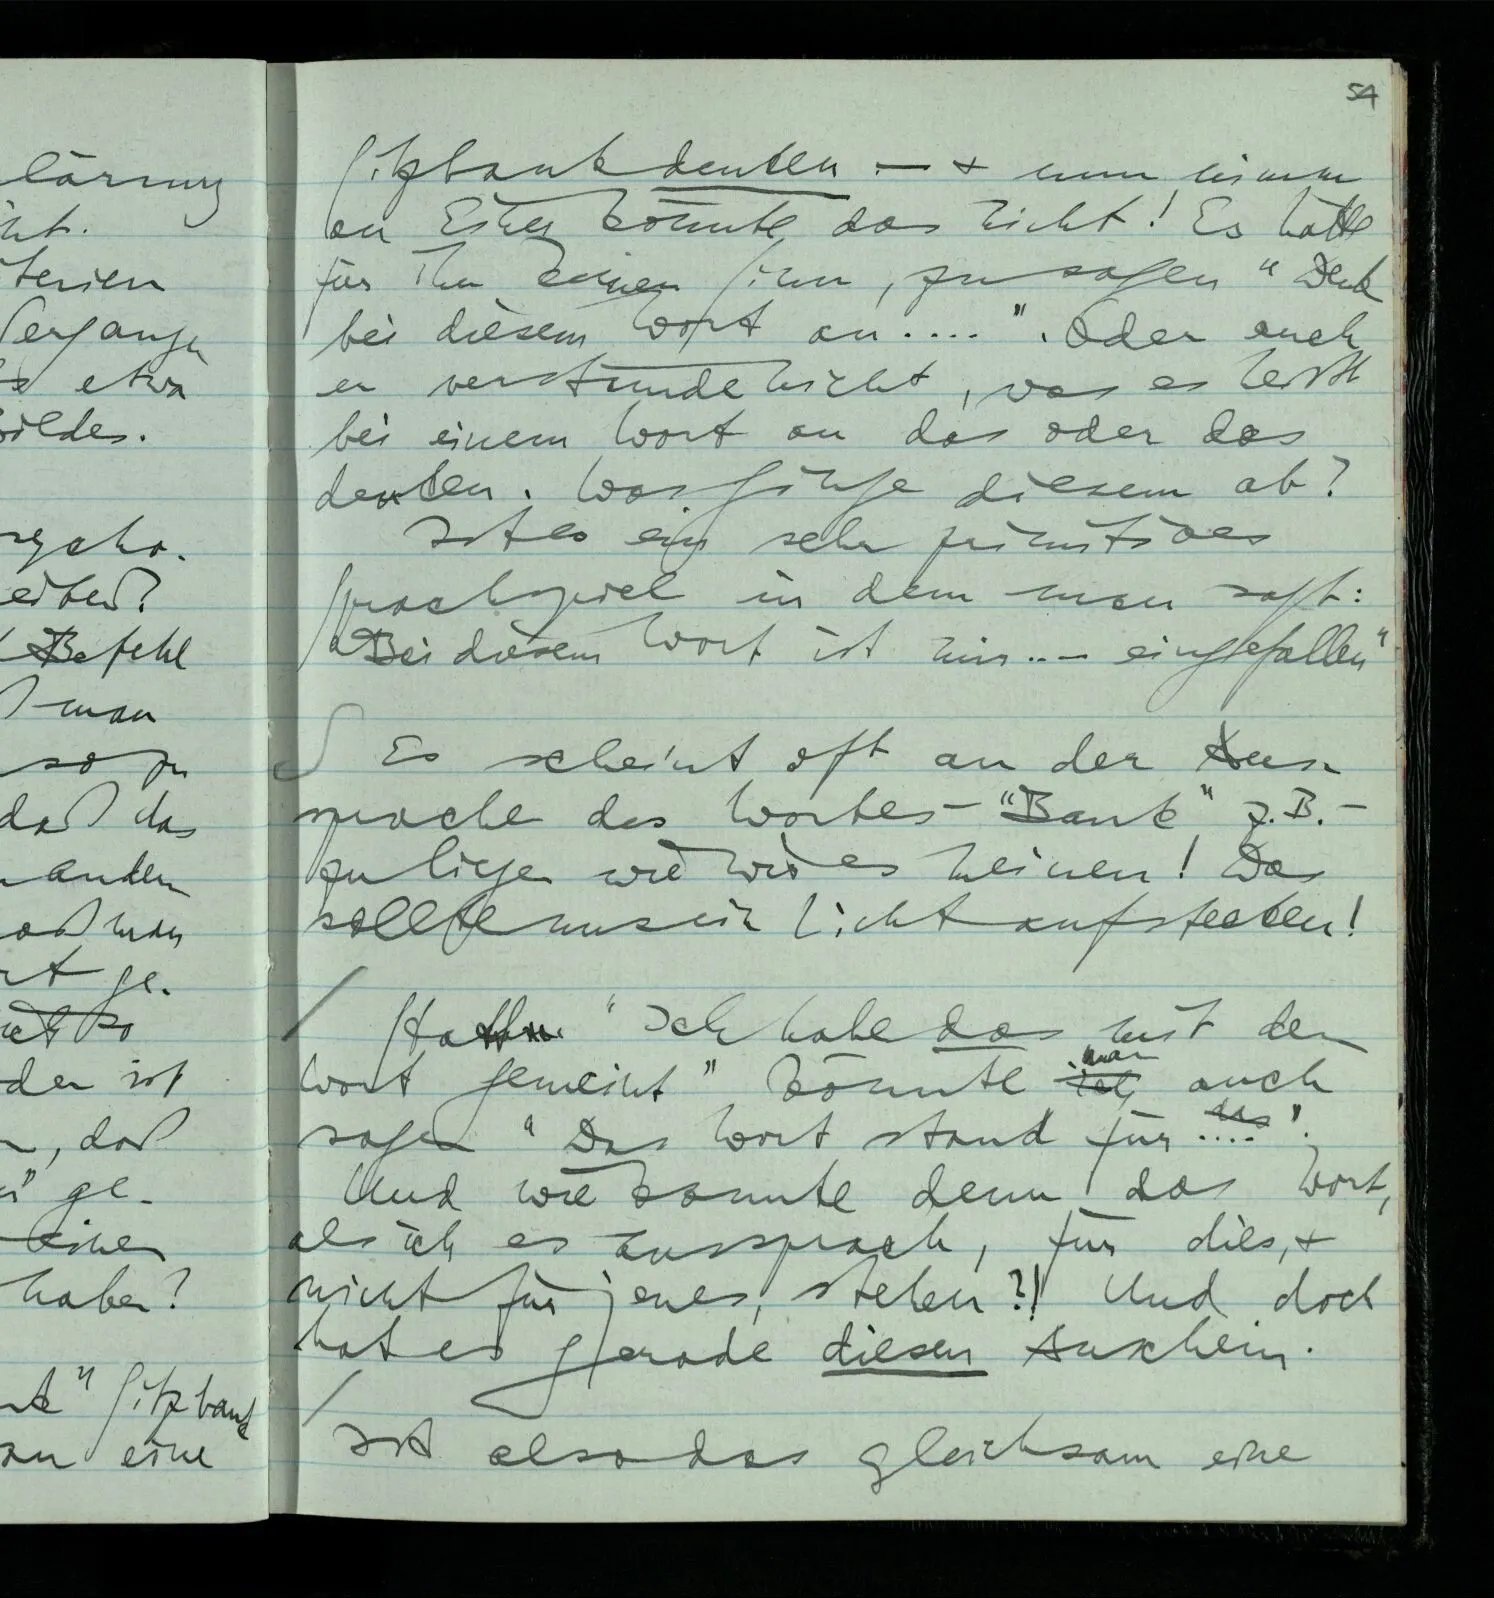 lärung
ht.
terien
Vergange
s etwa
bildes.
psycho-
Befehl
man
so zu
daß das
andern
daß man
rt ge-
der ist
n, daß
ge-
einer
haben?
" Sitzbank
an eine
54
Sitzbank denken — & nun nimm
an Einer könnte das nicht! Es hätte
für ihn keinen Sinn, zu sagen “Denk
bei diesem Wort an....”. Oder auch
er verstünde nicht, was es heißt
bei einem Wort an das oder das
denken. Was ginge diesem ab?
Ist es ein sehr primitives
Sprachspiel in dem man sagt:
“Bei diesem Wort ist mir... eingefallen”
∫ Es scheint oft an der Aus-
sprache des Wortes – “Bank” z.B. –
zu liegen wie wir es meinen! Das
sollte uns ein Licht aufstecken!
/ Statt: “Ich habe das mit dem
Wort gemeint” könnte ich man auch
sagen “Das Wort stand für ....”.
Und wie konnte denn das Wort,
als ich es aussprach, für dies, &
nicht für jenes, stehen?! Und doch
hat es gerade diesen Anschein.
/ Ist also das gleichsam eine